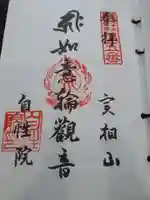 奉拝
実相山
如意輪観音
自性院